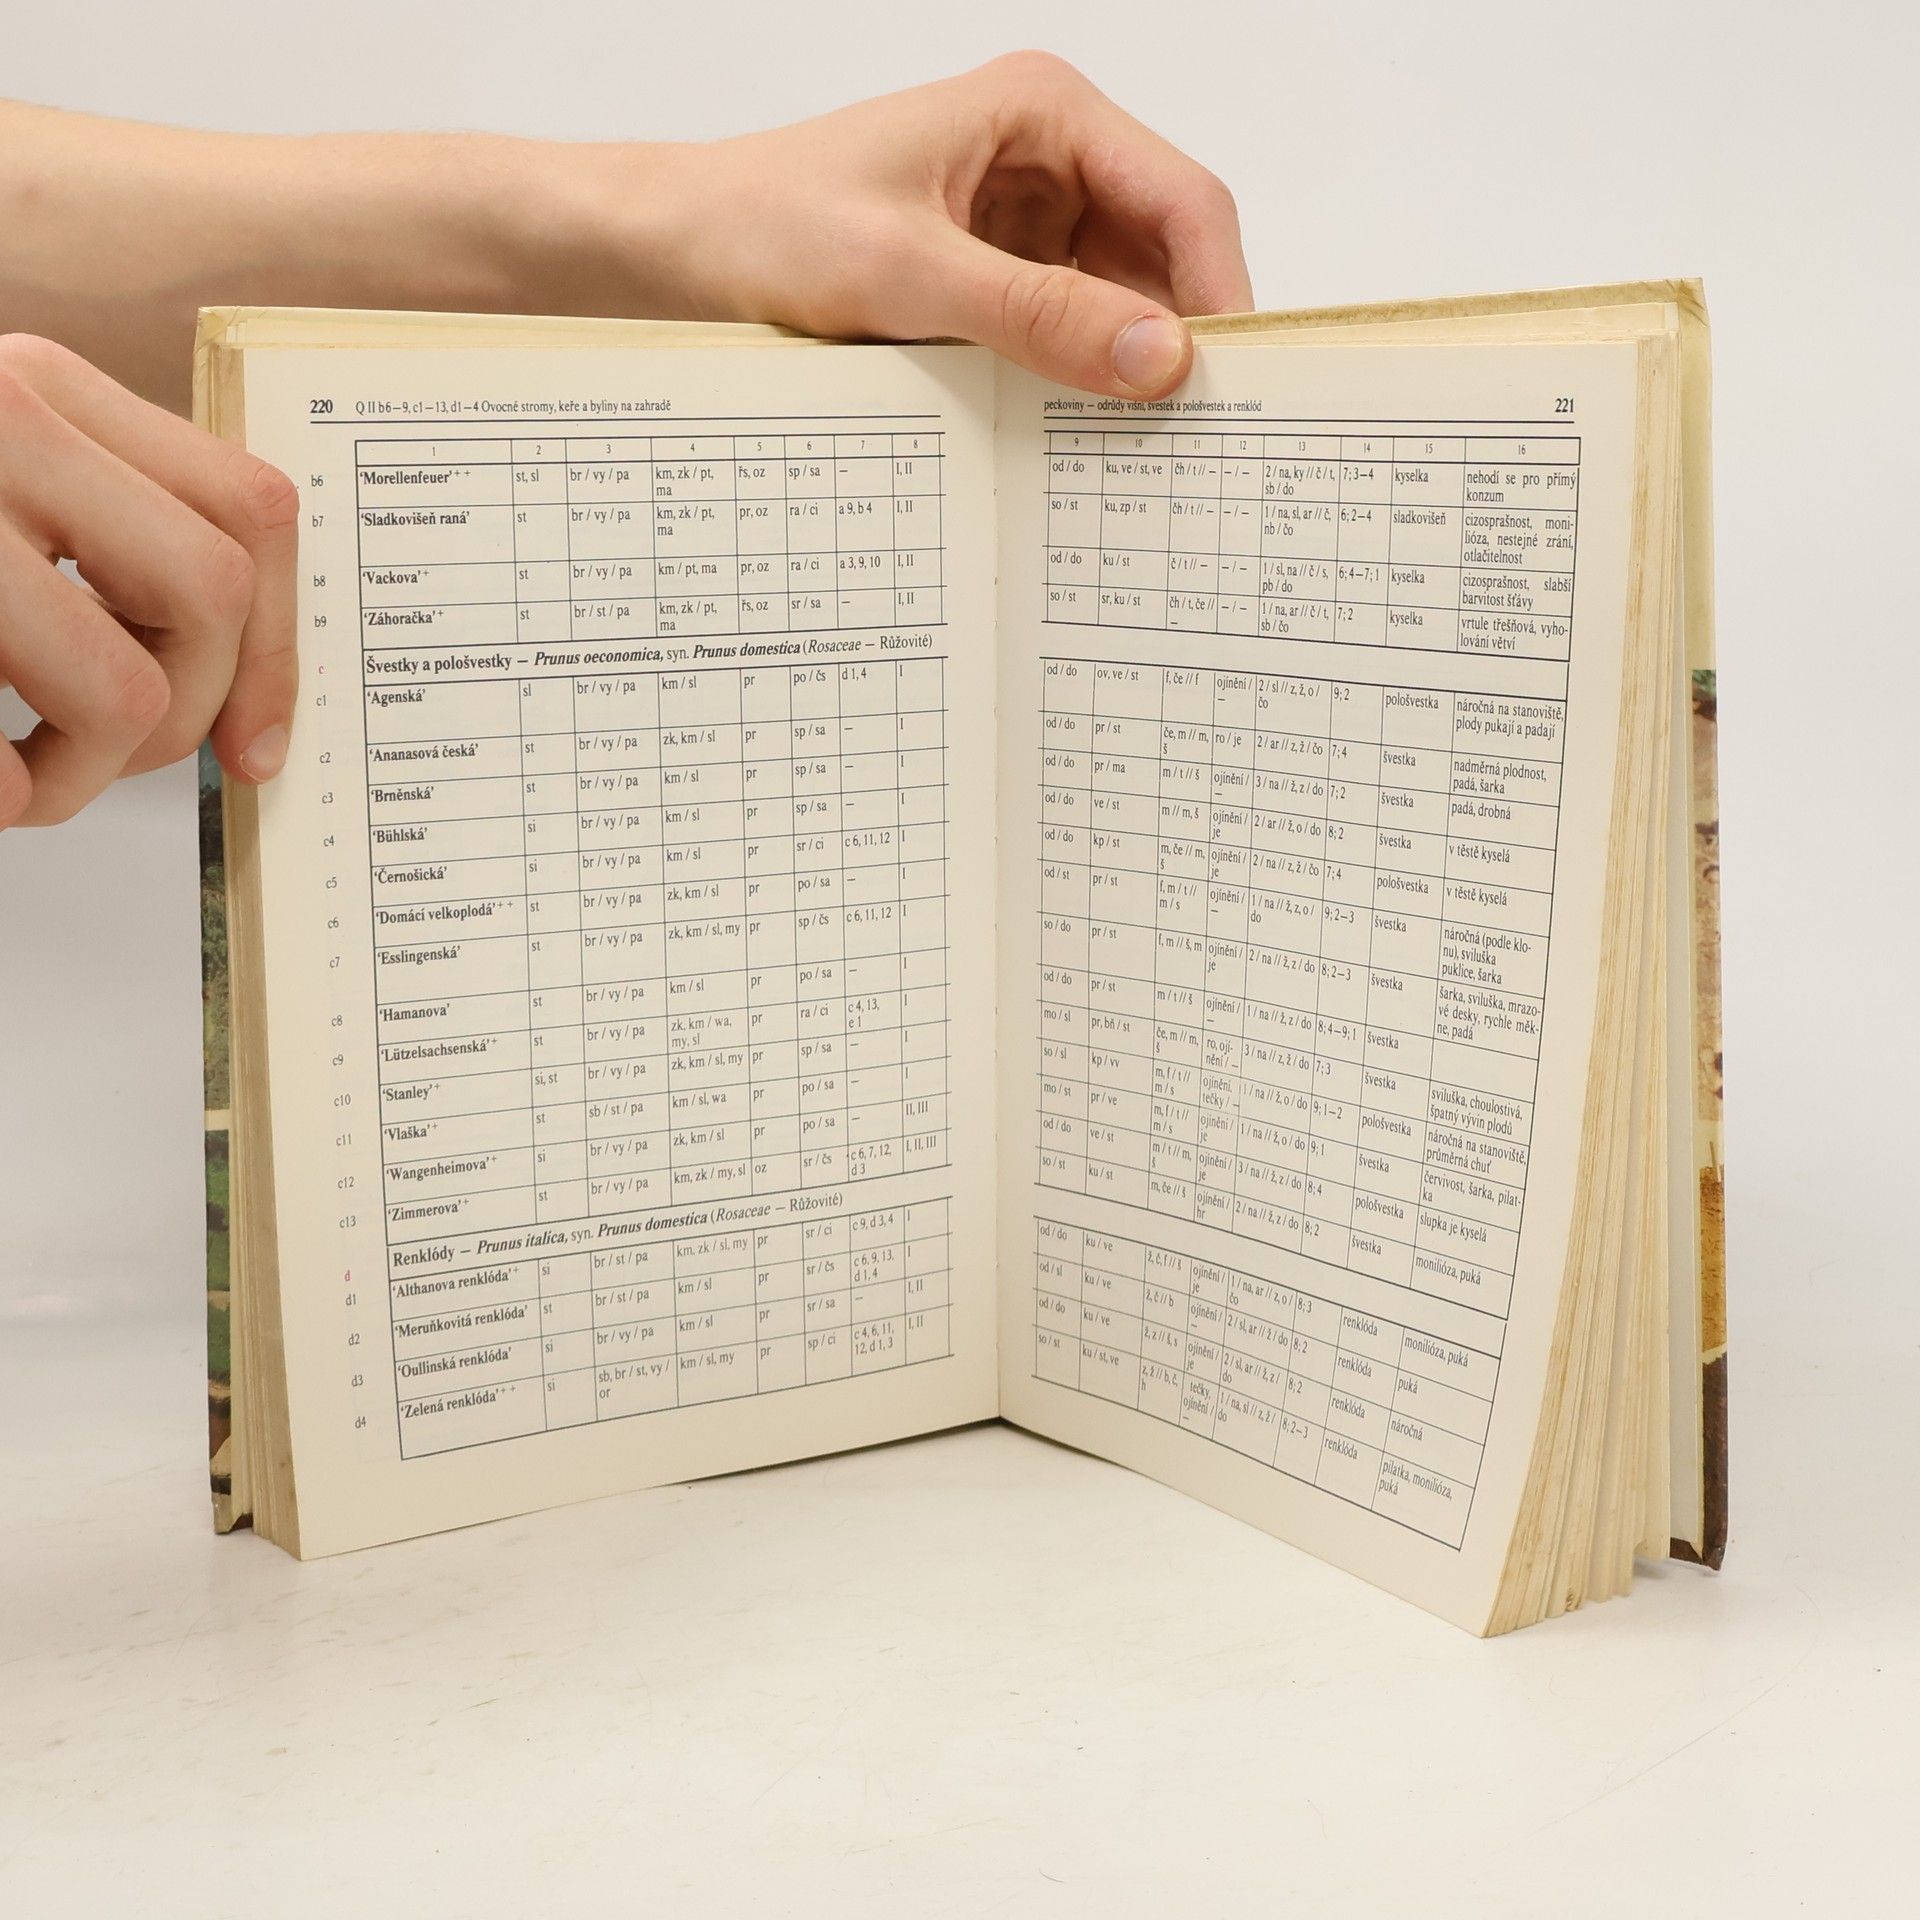 220 Q II b6–9, c1–13, d1–4 Ovocné stromy, keře a byliny na zahradě
1 2 3 4 5 6 7 8
b6 ‘Morellenfeuer’++ st, sl br / vy / pa km, zk / pt, ma řs, oz sp / sa – I, II
b7 ‘Sladkovišeň raná’ st br / vy / pa km, zk / pt, ma pr, oz ra / ci a 9, b 4 I, II
b8 ‘Vackova’+ st br / vy / pa km / pt, ma pr, oz ra / ci a 3, 9, 10 I, II
b9 ‘Záhoračka’+ st br / st / pa km, zk / pt, ma řs, oz sr / sa – I, II
c Švestky a pološvestky – Prunus oeconomica, syn. Prunus domestica (Rosaceae – Růžovité)
c1 ‘Agenská’ sl br / vy / pa km / sl pr po / čs d 1, 4 I
c2 ‘Ananasová česká’ st br / vy / pa zk, km / sl pr sp / sa – I
c3 ‘Brněnská’ st br / vy / pa km / sl pr sp / sa – I
c4 ‘Bühlská’ si br / vy / pa km / sl pr sp / sa – I
c5 ‘Černošická’ si br / vy / pa km / sl pr sr / ci c 6, 11, 12 I
c6 ‘Domácí velkoplodá’++ st br / vy / pa zk, km / sl pr po / sa – I
c7 ‘Esslingenská’ st br / vy / pa zk, km / sl, my pr sp / čs c 6, 11, 12 I
c8 ‘Hamanova’ st br / vy / pa km / sl pr po / sa – I
c9 ‘Lützelsachsenská’+ st br / vy / pa zk, km / wa, my, sl pr ra / ci c 4, 13, e 1 I
c10 ‘Stanley’+ si, st br / vy / pa zk, km / sl, my pr sp / sa – I
c11 ‘Vlaška’+ st sb / st / pa km / sl, wa pr po / sa – I
c12 ‘Wangenheimova’+ si br / vy / pa zk, km / sl pr po / sa – II, III
c13 ‘Zimmerova’+ st br / vy / pa km, zk / my, sl oz sr / čs c 6, 7, 12, d 3 I, II, III
d Renklódy – Prunus italica, syn. Prunus domestica (Rosaceae – Růžovité)
d1 ‘Althanova renklóda’+ si br / st / pa km, zk / sl, my pr sr / ci c 9, d 3, 4 I
d2 ‘Meruňkovitá renklóda’ st br / st / pa km / sl pr sr / čs c 6, 9, 13, d 1, 4 I
d3 ‘Oullinská renklóda’ si br / vy / pa km / sl pr sr / sa – I, II
d4 ‘Zelená renklóda’++ si sb, br / st, vy / or km / sl, my pr sp / ci c 4, 6, 11, 12, d 1, 3 I, II
peckoviny – odrůdy višní, švestek a pološvestek a renklód 221
9 10 11 12 13 14 15 16
od / do ku, ve / st, ve čh / t // – – / – 2 / na, ky // č / t, sb / do 7; 3–4 kyselka nehodí se pro přímý konzum
so / st ku, zp / st čh / t // – – / – 1 / na, sl, ar // č, nb / čo 6; 2–4 sladkovišeň cizosprašnost, monilióza, nestejné zrání, otlačitelnost
od / do ku / st č / t // – – / – 1 / sl, na // č / s, pb / do 6; 4–7; 1 kyselka cizosprašnost, slabší barvitost šťávy
so / st sr, ku / st čh / t, če // – – / – 1 / na, ar // č / t, sb / čo 7; 2 kyselka vrtule třešňová, vyholování větví
od / do ov, ve / st f, če // f ojínění / – 2 / sl // z, ž, o / čo 9; 2 pološvestka náročná na stanoviště, plody pukají a padají
od / do pr / st če, m // m, š ro / je 2 / ar // z, ž / čo 7; 4 švestka nadměrná plodnost, padá, šarka
od / do pr / ma m / t // š ojínění / – 3 / na // ž, z / do 7; 2 švestka padá, drobná
od / do ve / st m // m, š ojínění / je 2 / ar // ž, o / do 8; 2 švestka v těstě kyselá
od / do kp / st m, če // m, š ojínění / je 2 / na // z, ž / čo 7; 4 pološvestka v těstě kyselá
od / st pr / st f, m / t // m / s ojínění / – 1 / na // ž, z, o / do 9; 2–3 švestka náročná (podle klonu), sviluška puklice, šarka
so / do pr / st f, m // š, m ojínění / je 2 / na // ž, z / do 8; 2–3 švestka šarka, sviluška, mrazové desky, rychle měkne, padá
od / do pr / st m / t // š ojínění / – 1 / na // ž, z / do 8; 4–9; 1 švestka
mo / sl pr, bň / st če, m // m, š ro, ojínění / – 3 / na // z, ž / do 7; 3 švestka sviluška, choulostivá, špatný vývin plodů
so / sl kp / vv m, f / t // m / s ojínění, tečky / – 1 / na // ž, o / do 9; 1–2 pološvestka náročná na stanoviště, průměrná chuť
mo / st pr / ve m, f / t // m / s ojínění / je 1 / na // ž, o / do 9; 1 švestka červivost, šarka, pilatka
od / do ve / st m / t // m, š ojínění / je 3 / na // ž, z / do 8; 4 pološvestka slupka je kyselá
so / st ku / st m, če // š ojínění / hr 2 / na // ž, z / do 8; 2 švestka monilióza, puká
od / do ku / ve ž, č, f // š ojínění / je 1 / na, ar // z, o / čo 8; 3 renklóda monilióza, puká
od / sl ku / ve ž, č // b ojínění / – 2 / sl, ar // ž / do 8; 2 renklóda puká
od / do ku / ve ž, z // š, s ojínění / je 2 / sl, ar // ž, z / do 8; 2 renklóda náročná
so / st ku / st, ve z, ž // b, č, h tečky, ojínění / – 1 / na, sl // z, ž / do 8; 2–3 renklóda pilatka, monilióza, puká